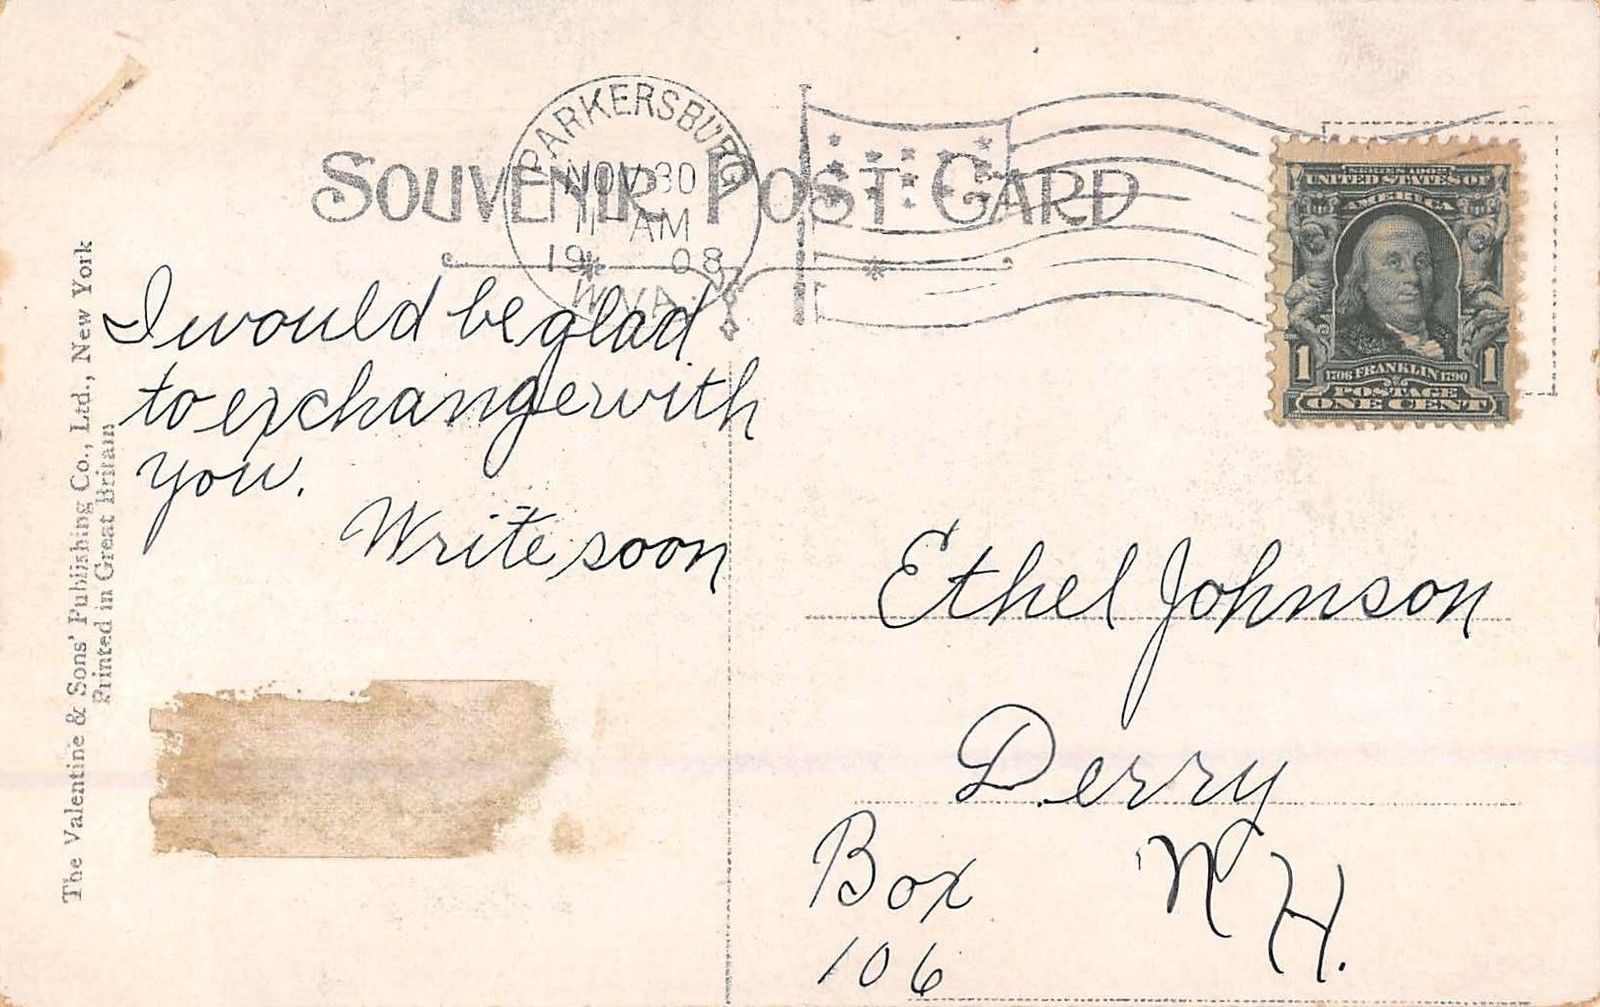 SOUVENIR POST CARD
PARKERSBURG
NOV 30
11 AM
1908
W.VA.
SERIES 1902
UNITED STATES OF
AMERICA
1 1706 FRANKLIN 1790 1
POSTAGE
ONE CENT
The Valentine & Sons' Publishing Co., Ltd., New York
Printed in Great Britain
I would be glad
to exchange with
you.
Write soon
Ethel Johnson
Derry
Box N.H.
106